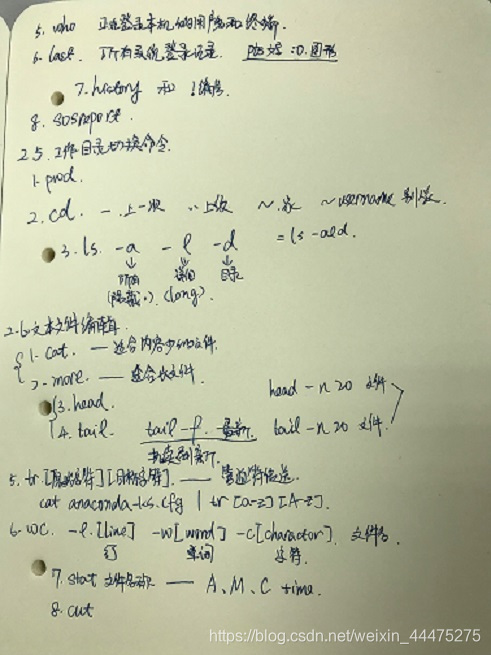 5. who 正在登录本机的用户和终端.
6. last. 所有系统登录记录. :0.图形
7. history 和 !编号.
8. sosreport.
2.5. 工作目录切换命令.
1. pwd.
2. cd. - 上一次 .. 上级 ~ 家 ~username 别家.
3. ls. -a -l -d = ls -ald.
所有 详细 目录
(隐藏.) (long).
2.6 文本文件编辑.
1. cat. — 适合内容少的文件.
2. more. — 适合长文件
3. head. head -n 20 文件
4. tail. tail -f 最新. tail -n 20 文件.
持续刷新.
5. tr [原始字符] [目标字符]. — 管道符传送.
cat anaconda-ks.cfg | tr [a-z] [A-Z].
6. wc. -l.[line] -w[word] -c[charactor]. 文件名.
行 单词 字符.
7. stat 文件名称. — A、M、C time.
8. cut
https://blog.csdn.net/weixin_44475275